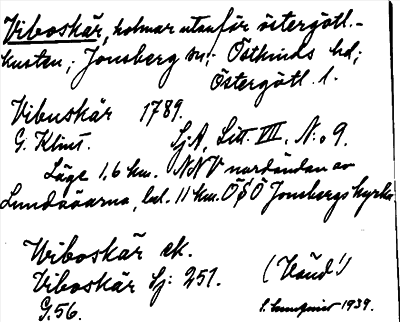 Viboskär, holmar utanför östergötl.-
kusten, Jonsberg sn; Östkinds hd;
Östergötl. l.
Vibuskär 1789.
G. Klint. SjA, Litt. VII. N:o 9.
Läge 1,6 km. NNV nordändan av
Lundaöarna, bel. 11 km. ÖSÖ Jonsbergs kyrka
Wiboskär ek.
Viboskär Sj: 251. (Känd!)
G. 56. 1939.